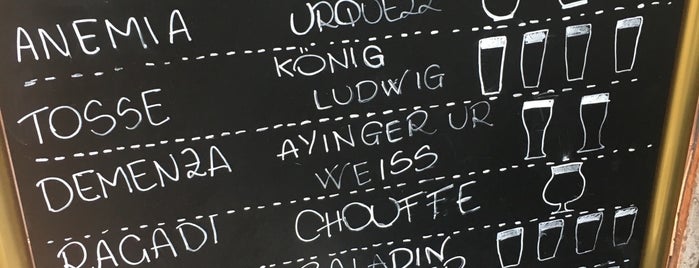 ANEMIA URQUELL
TOSSE KÖNIG
LUDWIG
DEMENZA AYINGER UR
WEISS
RAGADI CHOUFFE
BALADIN